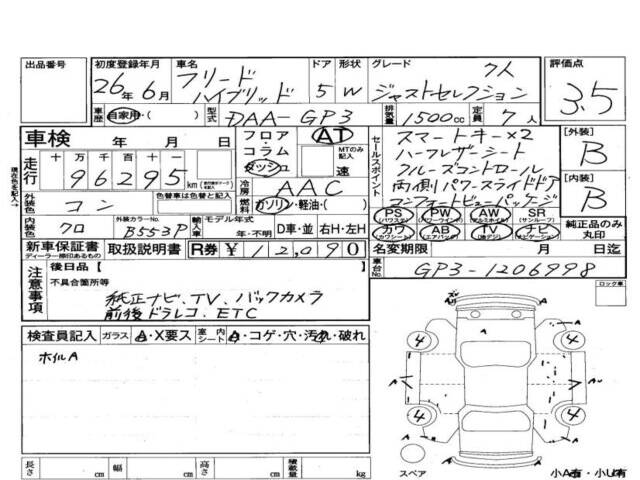 出品番号 初度登録年月 26年6月 車名 フリード ハイブリッド ドア 5 形状 W グレード 7人 ジャストセレクション 評価点 3.5
車歴 自家用・( ) 型式 DAA-GP3 排気量 1500cc 定員 7人
車検 年 月 日 フロア コラム ダッシュ AT MTのみ記入 速
走行 十万千百十一 96295 km
セールスポイント スマートキー×2
ハーフレザーシート
クルーズコントロール
両側パワースライドドア
コンフォートビューパッケージ
[外装] B
[内装] B
外装色 コン 色替車は色替と記入 冷房 AAC
燃料 ガソリン・軽油・( )
内装色 クロ 外装カラーNo. B553P 輸入車 モデル年式 年・不明 D車・並 右H・左H
PS (パワステ) PW (パワーウインド) AW (アルミホイル) SR (サンルーフ)
カワ (カワシート) AB (エアバッグ) TV (地デジ) ナビ (ナビゲーション)
純正品のみ丸印
新車保証書 ディーラー捺印あるもの 取扱説明書 R券 ¥12,090 名変期限 月 日迄
車台No. GP3-1206998
注意事項 後日品 [ ]
不具合箇所等
純正ナビ、TV、バックカメラ
前後ドラレコ、ETC
ロック車
検査員記入 ガラス A・X要ス 室内シート A・コゲ・穴・汚れ・破れ
ホイルA
4 4 4 4
A A A
スペア
小A有・小U有
長さ cm 幅 cm 高さ cm 積載量 kg